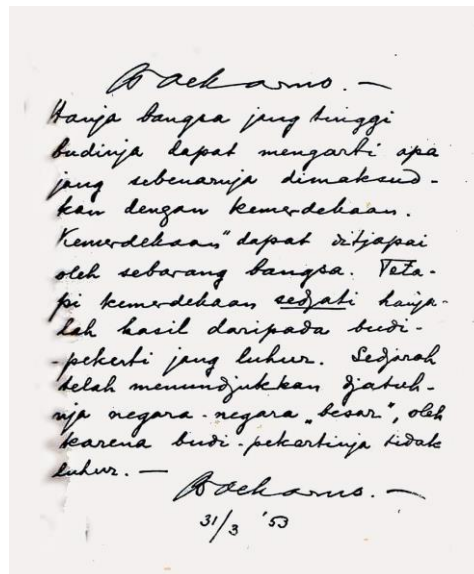 Soekarno. —
Hanja bangsa jang tinggi
budinja dapat mengarti apa
jang sebenarnja dimaksud-
kan dengan kemerdekaan.
"Kemerdekaan" dapat ditjapai
oleh sebarang bangsa. Teta-
pi kemerdekaan sedjati hanja-
lah hasil daripada budi-
-pekerti jang luhur. Sedjarah
telah menundjukkan djatuh-
nja negara-negara „besar", oleh
karena budi-pekertinja tidak
luhur. —
Soekarno. —
31/3 '53